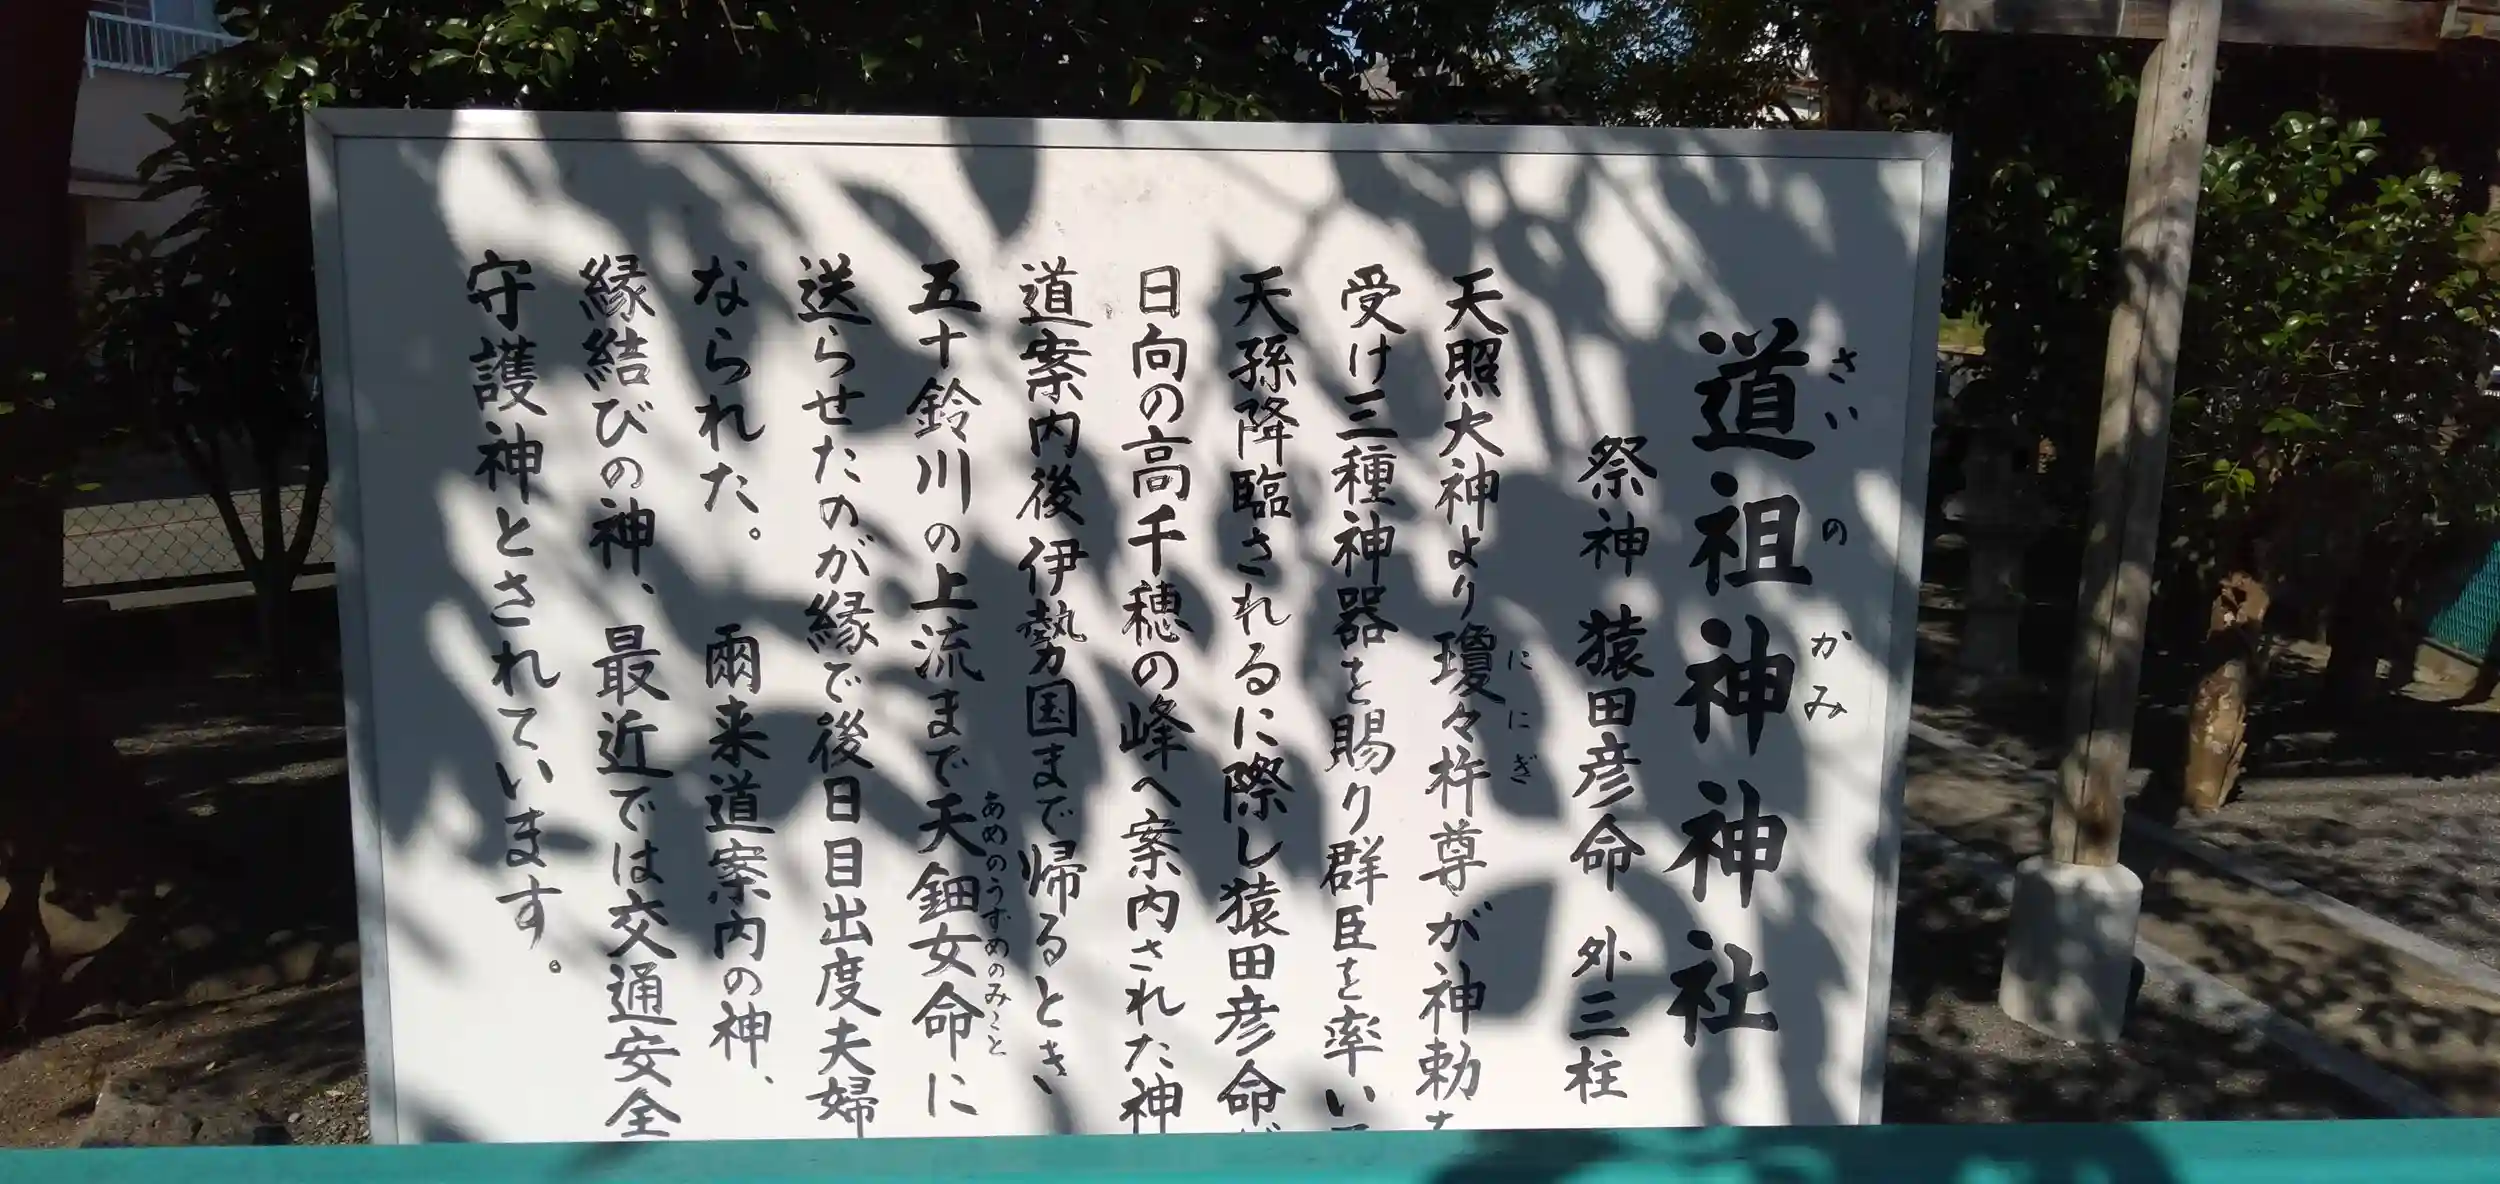 道祖神神社
さいのかみ
祭神 猿田彦命 外三柱
天照大神より瓊々杵尊が神勅
ににぎ
受け三種神器を賜り群臣を率い
天孫降臨されるに際し猿田彦命
日向の高千穂の峰へ案内された神
道案内後伊勢国まで帰るとき
五十鈴川の上流まで天鈿女命に
あめのうずめのみこと
送らせたのが縁で後日目出度夫婦
なられた。 爾来道案内の神、
縁結びの神、最近では交通安全
守護神とされています。